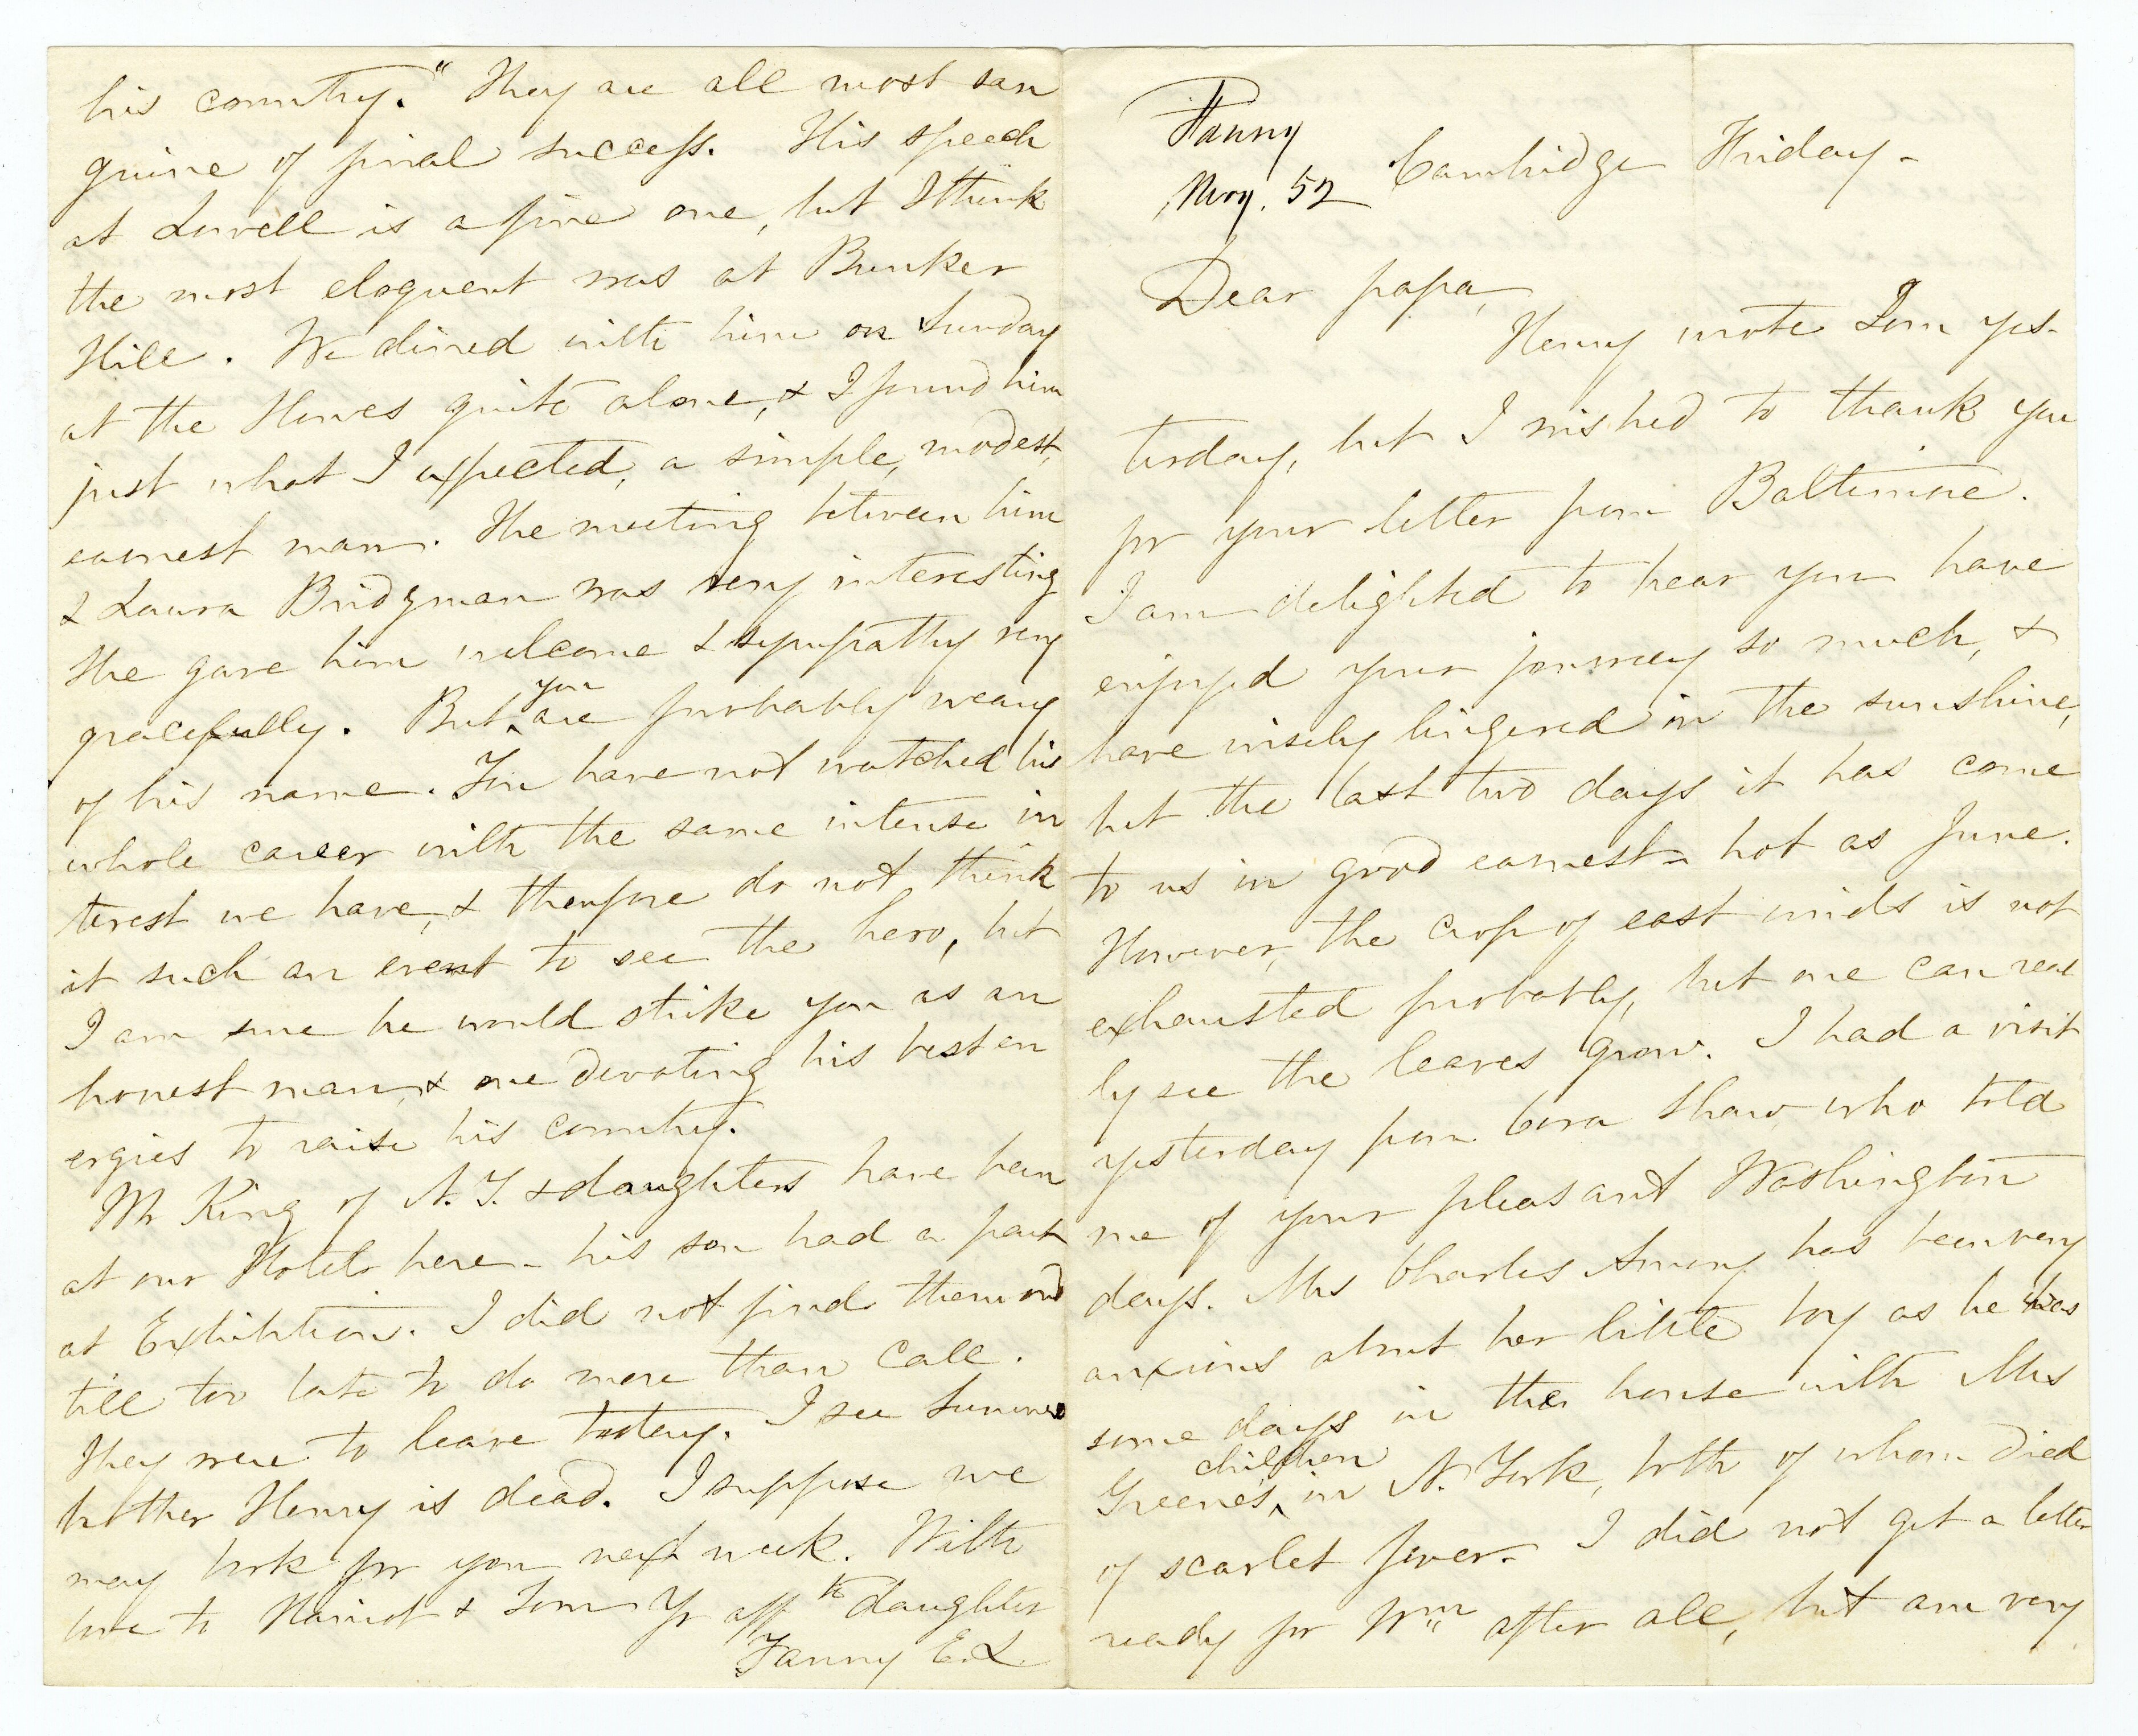 Fanny
May. 52
Cambridge Friday –
Dear papa,
Henry wrote Tom yes-
terday, but I wished to thank you
for your letter from Baltimore.
I am delighted to hear you have
enjoyed your journey so much, &
have wisely lingered in the sunshine,
but the last two days it has come
to us in good earnest – hot as June.
However, the crop of east winds is not
exhausted probably, but one can real
ly see the leaves grow. I had a visit
yesterday from Cora Shaw who told
me of your pleasant Washington
days. Mrs Charles Amory has been very
anxious about her little boy as he was
some days in the house with Mrs
Greene's children in N. York, both of whom died
of scarlet fever. I did not get a letter
ready for Wm after all, but am very
his country." They are all most san
guine of final success. His speech
at Lowell is a fine one, but I think
the most eloquent was at Bunker
Hill. We dined with him on Sunday
at the Howes quite alone, & I found him
just what I expected, a simple, modest,
earnest man. The meeting between him
& Laura Bridgman was very interesting
She gave him welcome & sympathy very
gracefully. But you are probably weary
of his name. You have not watched his
whole career with the same intense in
terest we have, & therefore do not think
it such an event to see the hero, but
I am sure he would strike you as an
honest man, & one devoting his best en
ergies to raise his country.
Mr King of N.Y. & daughters have been
at our Hotel here – his son had a part
at Exhibition. I did not find them out
till too late to do more than call.
They were to leave today. I see Sumner's
brother Henry is dead. I suppose we
may look for you next week. With
love to Harriot & Tom Yr afftte daughter
Fanny E.L.